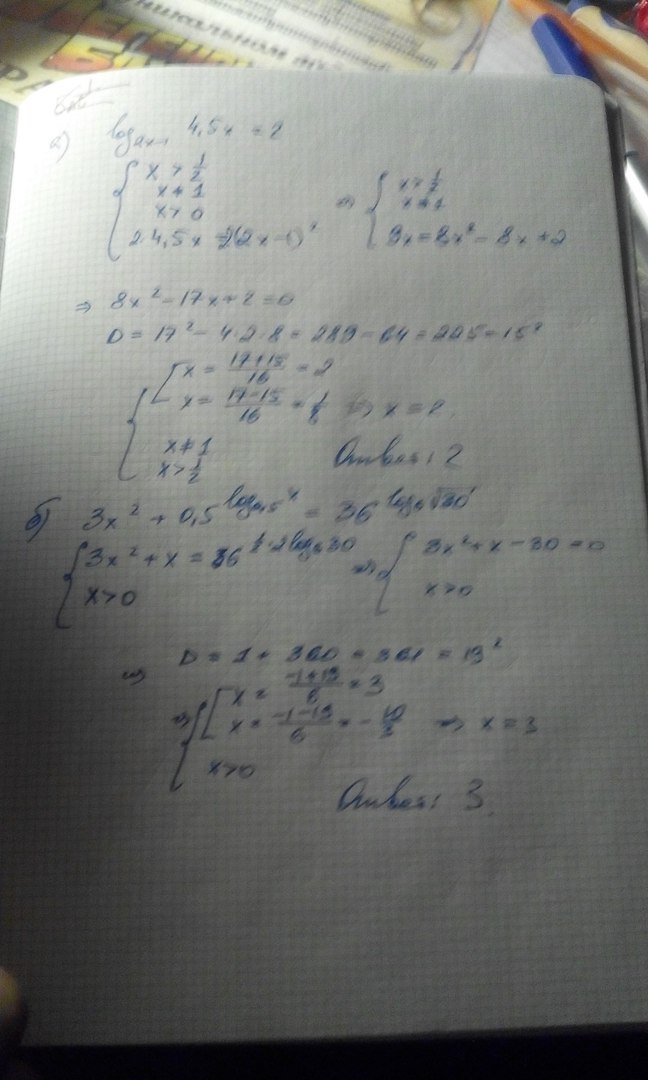 а) log₂ₓ₋₁ 4,5x = 2
{ x > 1/2
x ≠ 1
x > 0
2·4,5x = 2(2x-1)²
⇒ { x > 1/2
x ≠ 1
9x = 8x² - 8x + 2
⇒ 8x² - 17x + 2 = 0
D = 17² - 4·2·8 = 289 - 64 = 225 = 15²
{ [ x = (17+15)/16 = 2
x = (17-15)/16 = 1/8 ⇒ x = 2.
x ≠ 1
x > 1/2
Ответ: 2
б) 3x² + 0,5^(log₀,₅ x) = 36^(log₆ √30)
{ 3x² + x = 36^(1/2·log₆ 30) ⇒ { 3x² + x - 30 = 0
x > 0
x > 0
⇒ D = 1 + 360 = 361 = 19²
⇒ { [ x = (-1+19)/6 = 3
x = (-1-19)/6 = -10/3 ⇒ x = 3
x > 0
Ответ: 3.